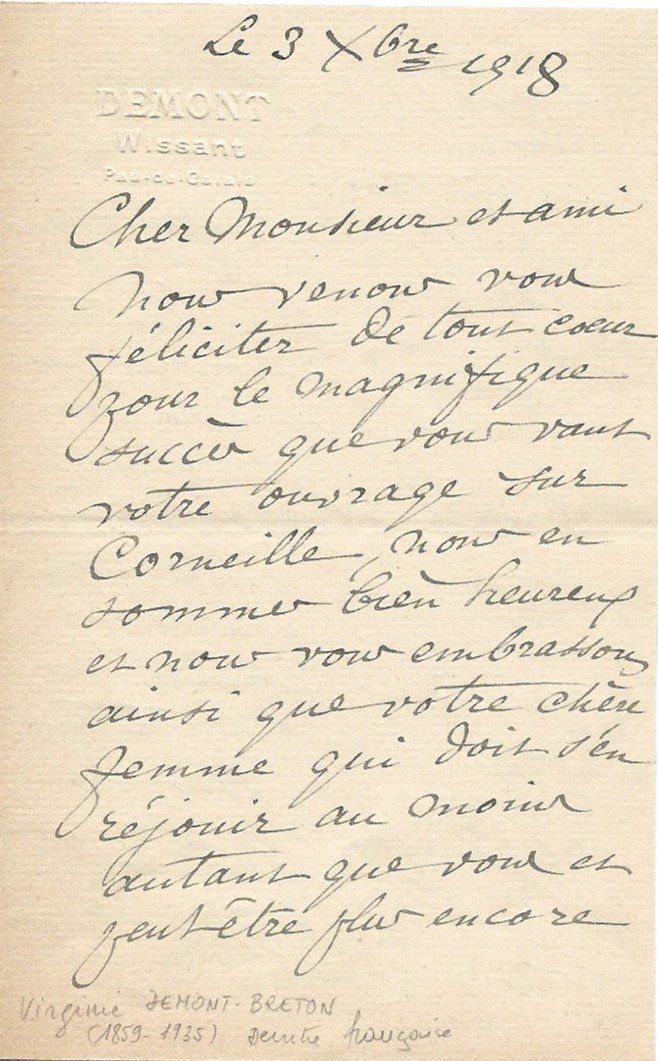 Le 3 Xbre 1918
DEMONT
Wissant
Pas-de-Calais
Cher Monsieur et ami
nous venons vous
féliciter de tout coeur
pour le magnifique
succès que vous vaut
votre ouvrage sur
Corneille, nous en
sommes bien heureux
et nous vous embrassons
ainsi que votre chère
femme qui doit s'en
réjouir au moins
autant que vous et
peut-être plus encore
Virginie DEMONT-BRETON
(1859-1935) peintre française